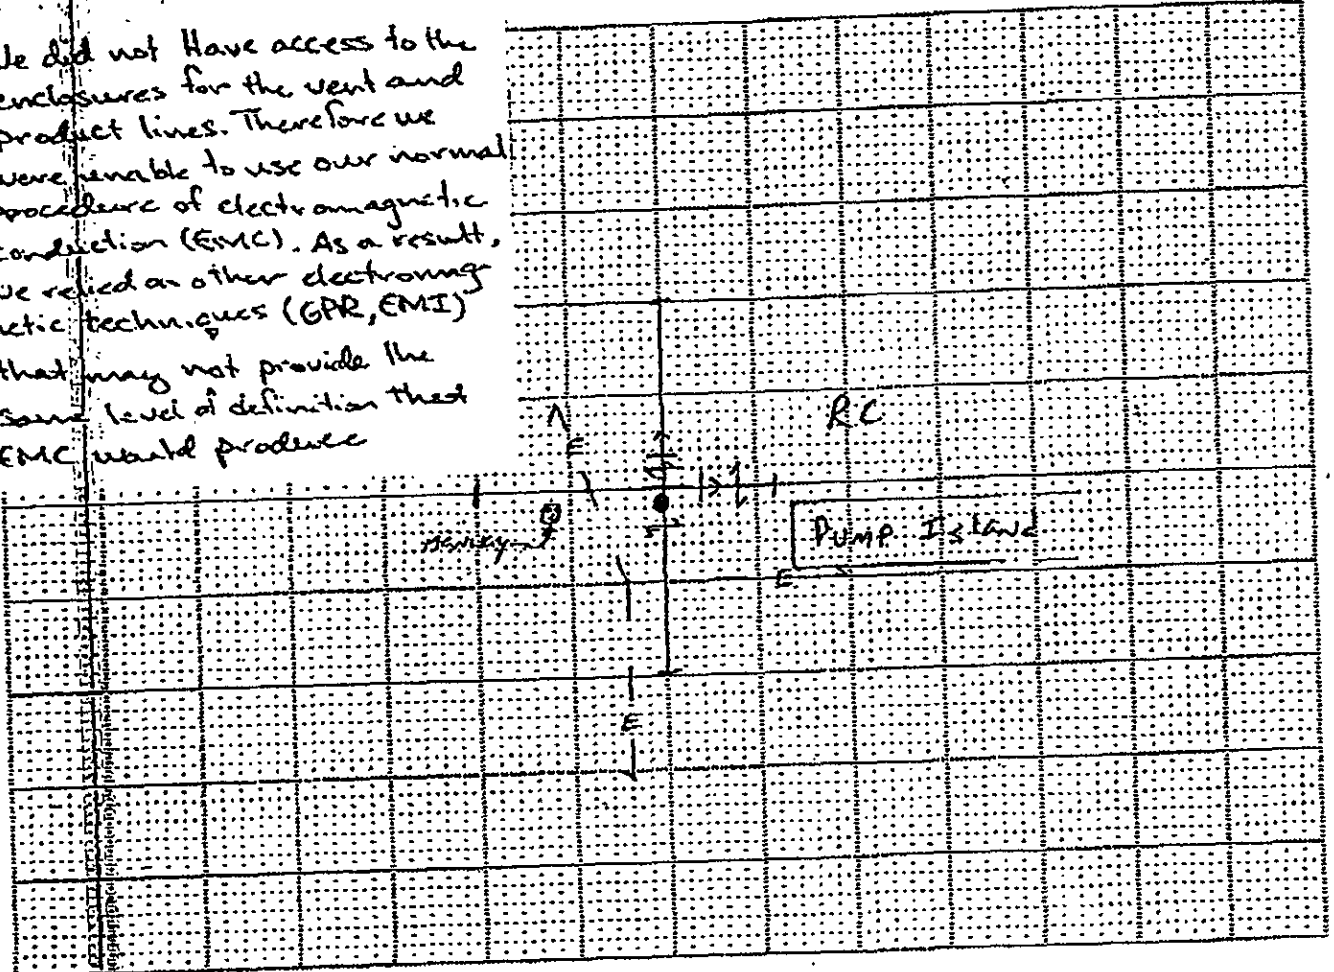 We did not Have access to the
enclosures for the vent and
product lines. Therefore we
were unable to use our normal
procedure of electromagnetic
conduction (EMC). As a result,
we relied on other electromag-
netic techniques (GPR, EMI)
that may not provide the
same level of definition that
EMC would produce
RC
E
Pump Island
E
E